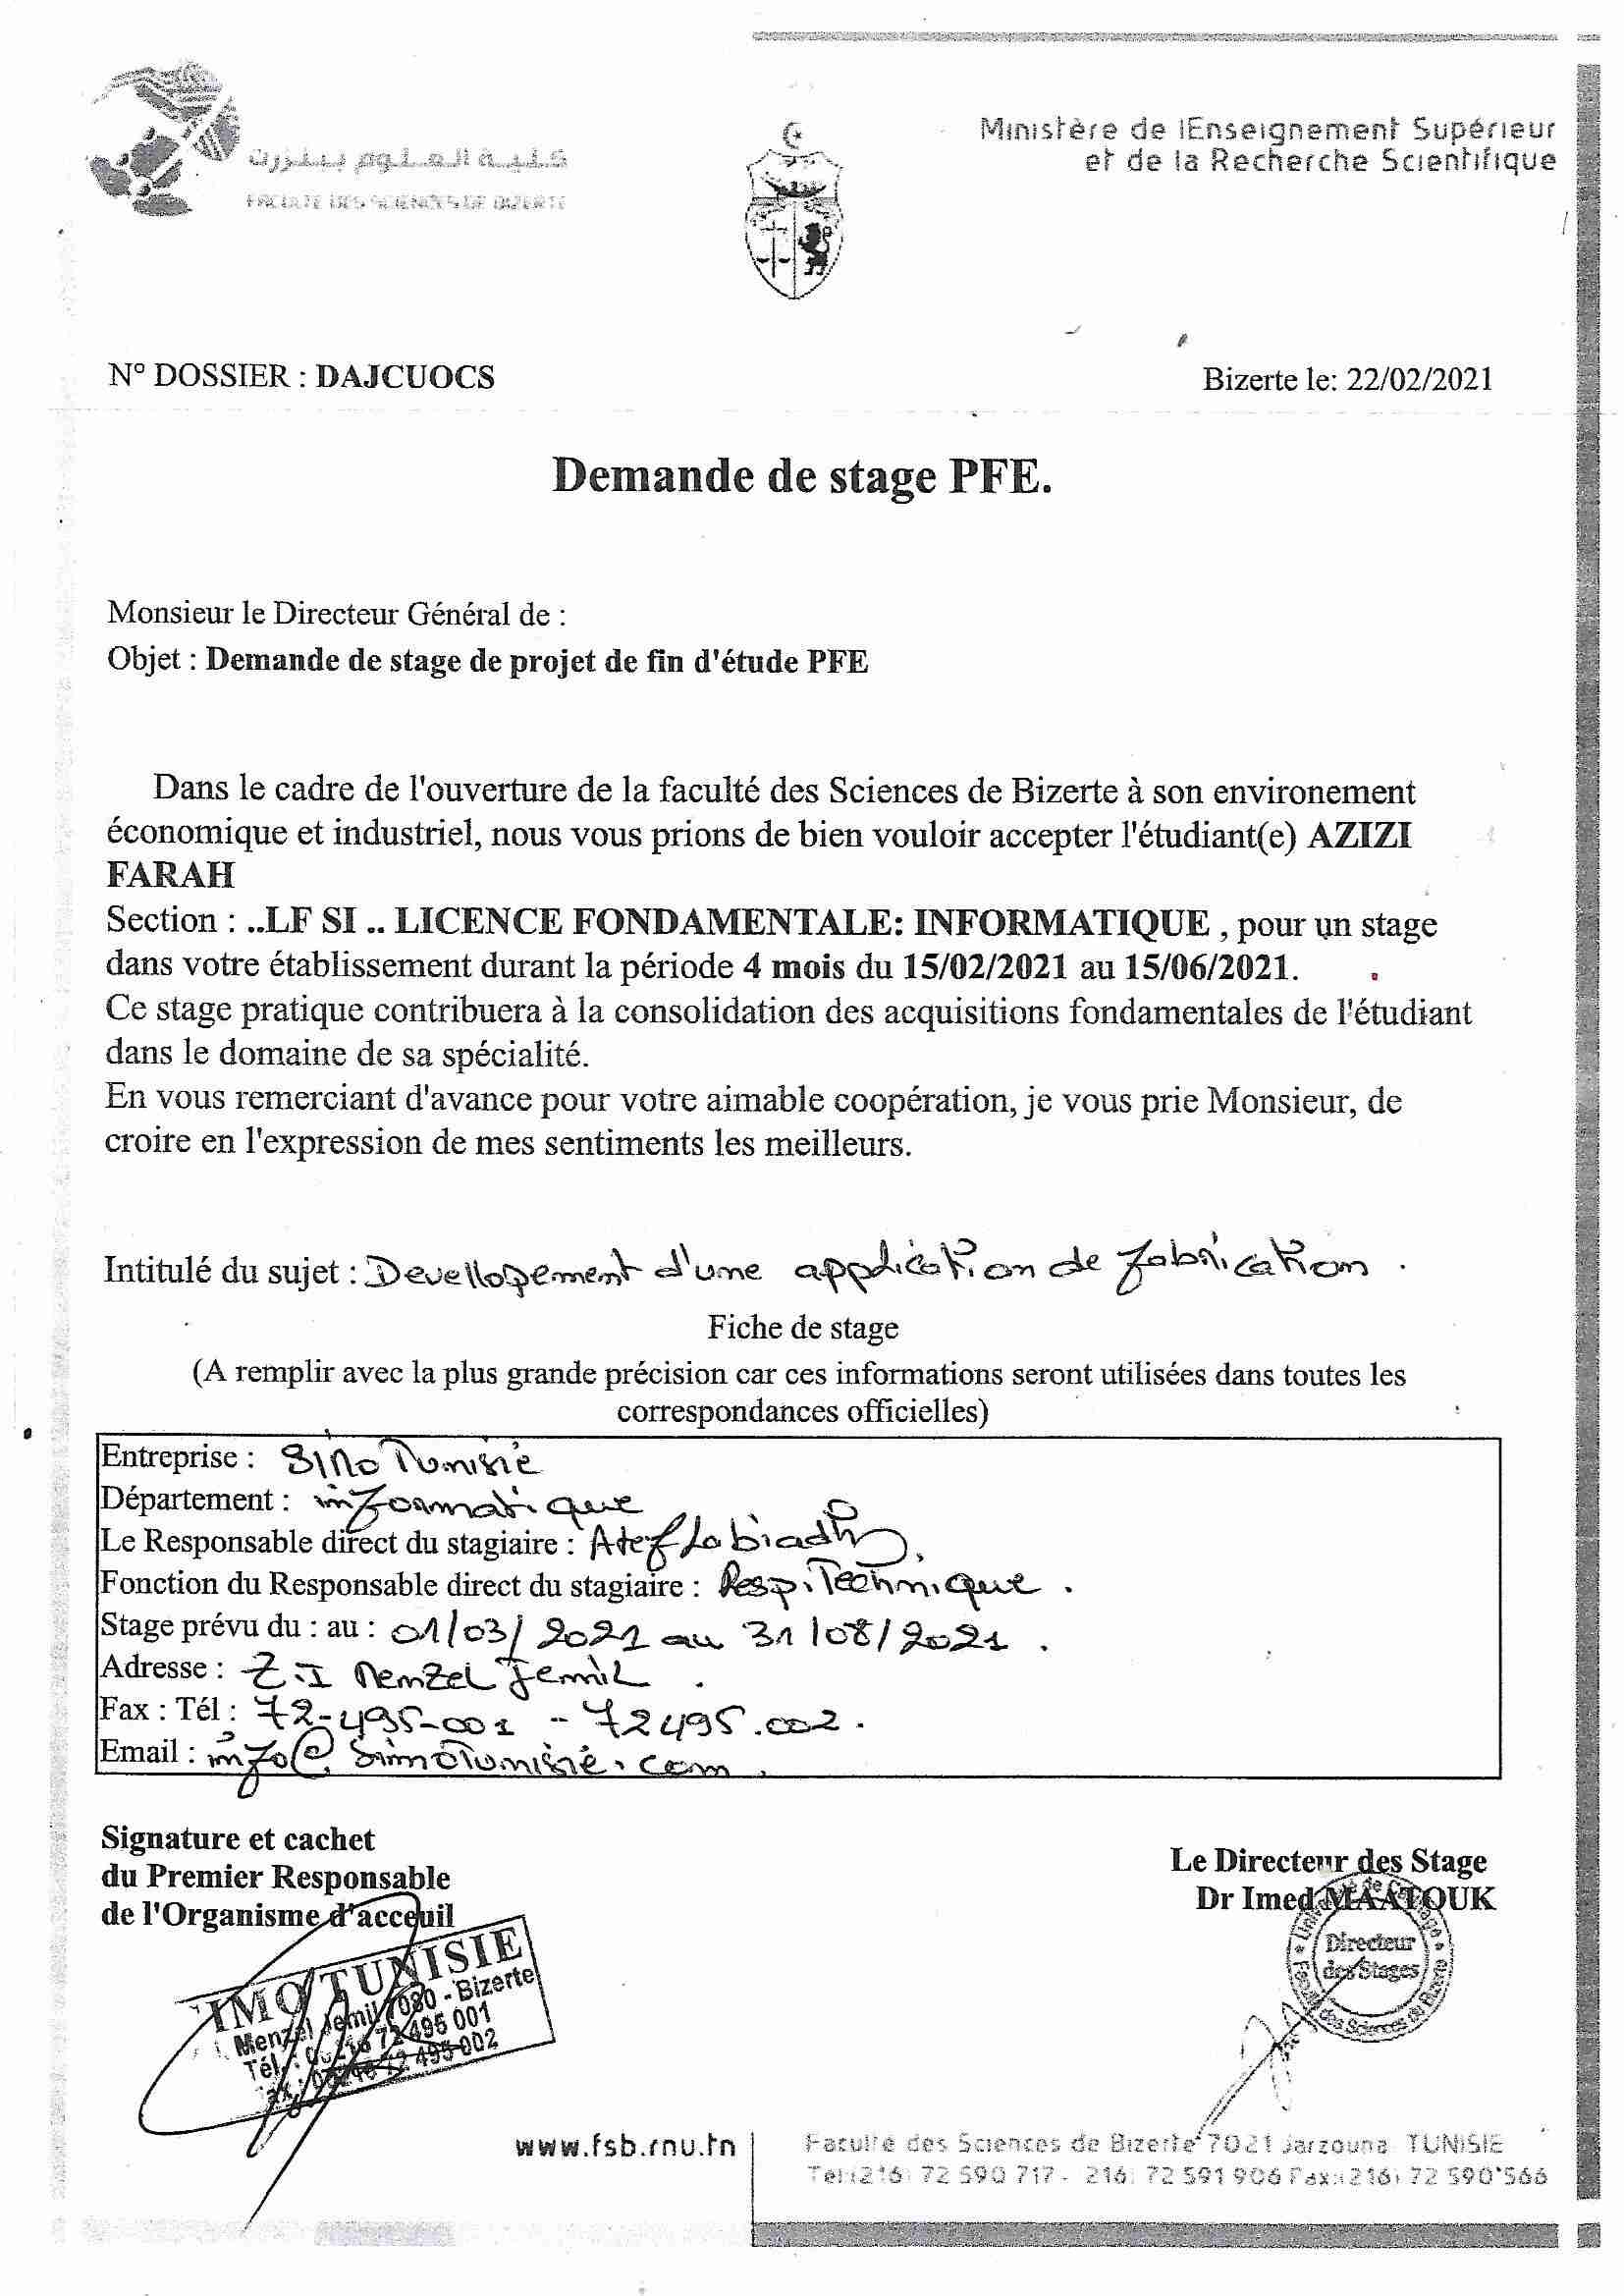 كلية العلوم ببنزرت
FACULTE DES SCIENCES DE BIZERTE
Ministère de lEnseignement Supérieur
et de la Recherche Scientifique
N° DOSSIER : DAJCUOCS
Bizerte le: 22/02/2021
Demande de stage PFE.
Monsieur le Directeur Général de :
Objet : Demande de stage de projet de fin d'étude PFE
Dans le cadre de l'ouverture de la faculté des Sciences de Bizerte à son environement
économique et industriel, nous vous prions de bien vouloir accepter l'étudiant(e) AZIZI
FARAH
Section : ..LF SI .. LICENCE FONDAMENTALE: INFORMATIQUE , pour un stage
dans votre établissement durant la période 4 mois du 15/02/2021 au 15/06/2021.
Ce stage pratique contribuera à la consolidation des acquisitions fondamentales de l'étudiant
dans le domaine de sa spécialité.
En vous remerciant d'avance pour votre aimable coopération, je vous prie Monsieur, de
croire en l'expression de mes sentiments les meilleurs.
Intitulé du sujet : Devellopement d'une application de fabrication .
Fiche de stage
(A remplir avec la plus grande précision car ces informations seront utilisées dans toutes les
correspondances officielles)
Entreprise : SIMO Tunisie
Département : informatique
Le Responsable direct du stagiaire : Atef Labiadh.
Fonction du Responsable direct du stagiaire : Resp. Technique .
Stage prévu du : au : 01/03/2021 au 31/08/2021 .
Adresse : Z.I Menzel Jemil .
Fax : Tél : 72-495-001 - 72495.002 .
Email : info@simotunisie.com .
Signature et cachet
du Premier Responsable
de l'Organisme d'acceuil
IMO TUNISIE
Menzel Jemil 7080 - Bizerte
Tél. : 00216 72 495 001
Fax : 00216 72 495 002
Le Directeur des Stage
Dr Imed MAATOUK
Université de Carthage
Directeur
des Stages
Faculté des Sciences de Bizerte
www.fsb.rnu.tn
Faculté des Sciences de Bizerte 7021 Jarzouna TUNISIE
Tel:(216) 72 590 717 - 216) 72 591 906 Fax:(216) 72 590 566